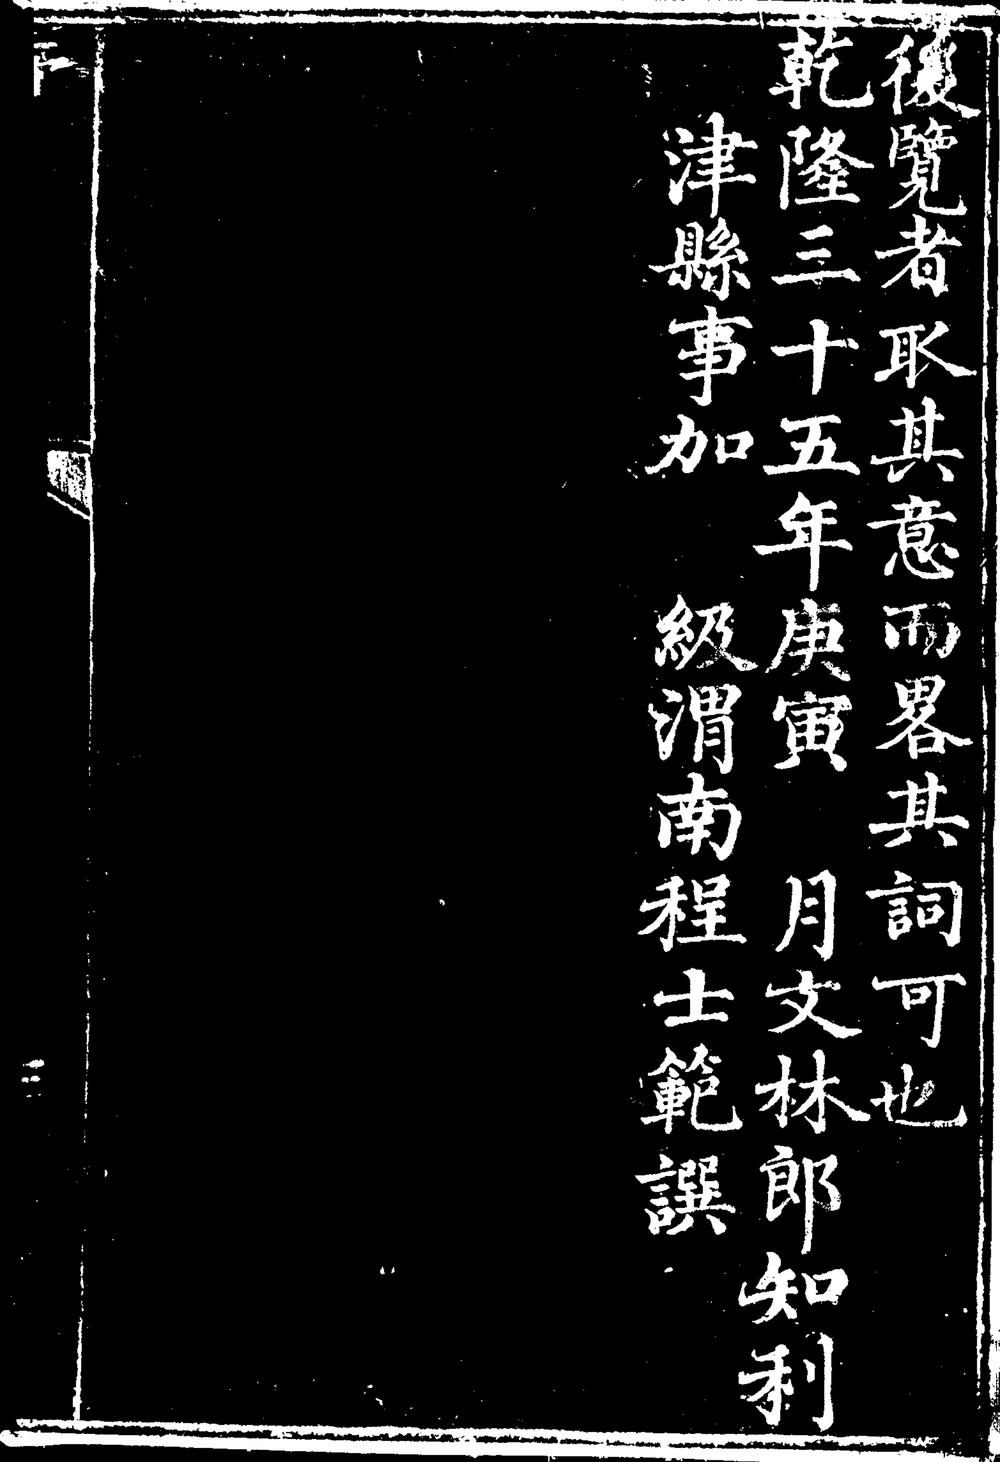 後覽者取其意而畧其詞可也
乾隆三十五年庚寅　月文林郎知利
津縣事加　級渭南程士範譔